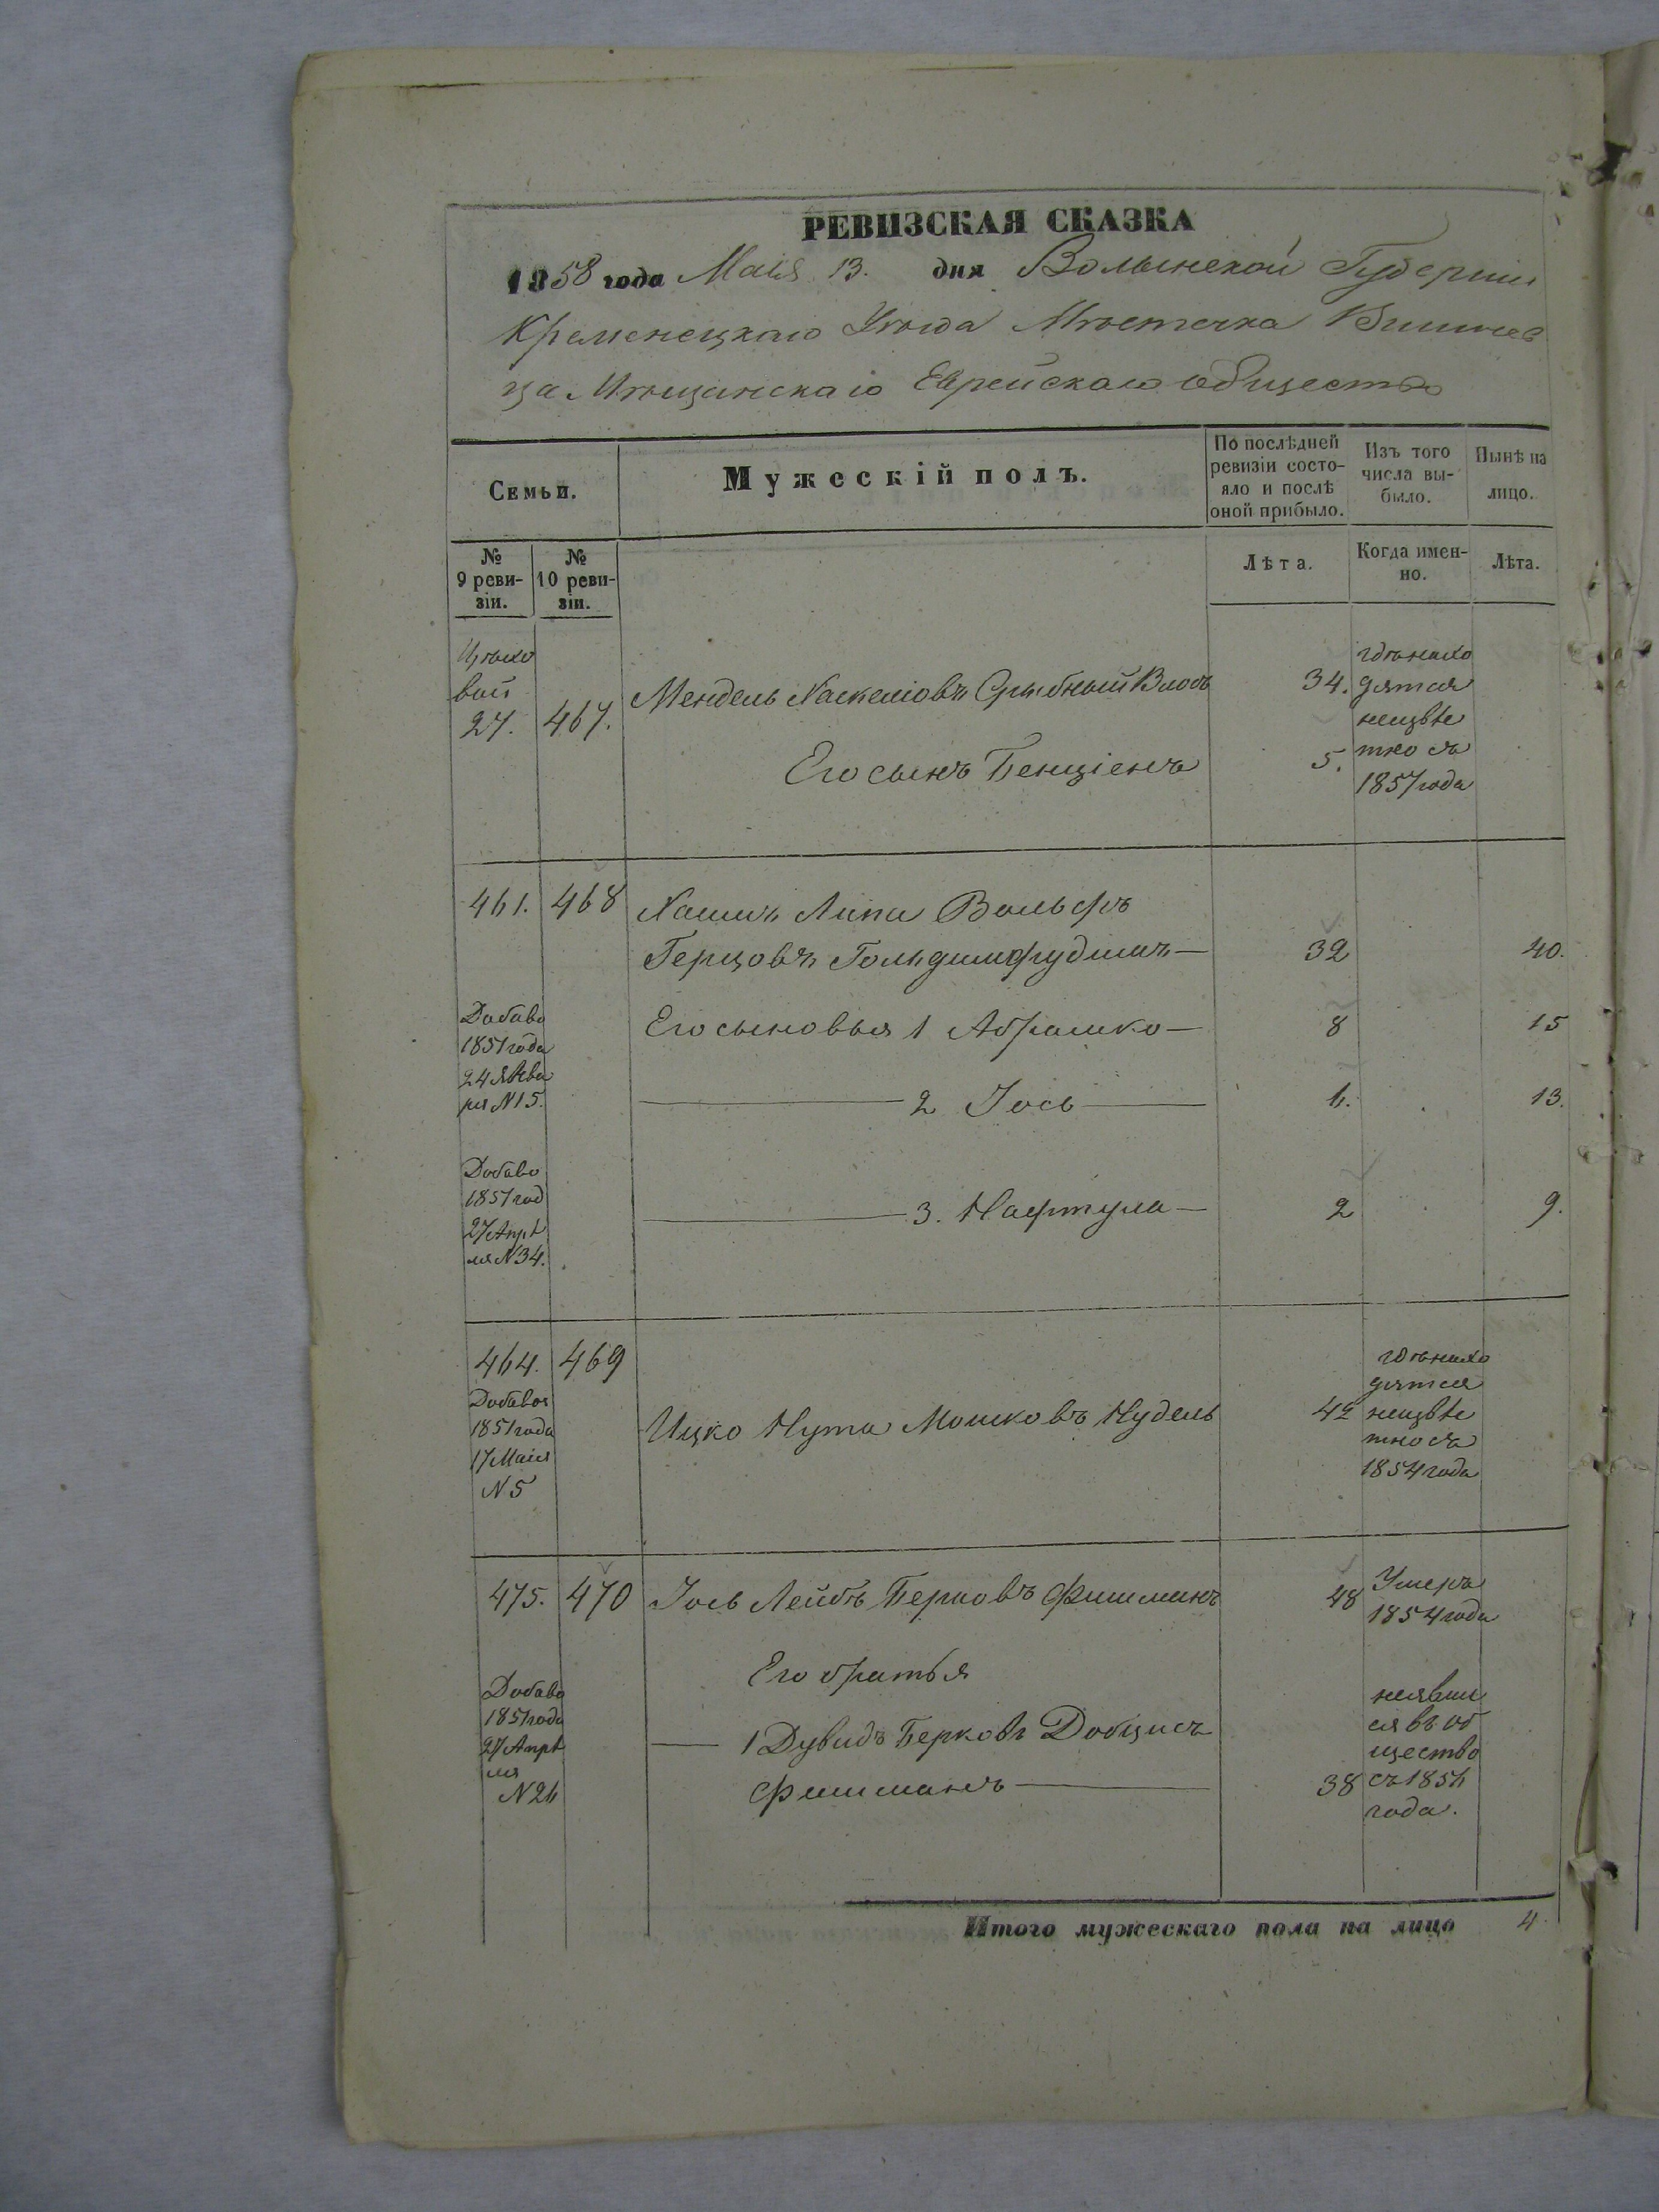 РЕВИЗСКАЯ СКАЗКА
1858 года Маія 13. дня Волынской Губерніи
Кременецкаго Уѣзда Мѣстечка Вишнев
ца Мѣщанскаго Еврейскаго общества
Семьи.
Мужескій полъ.
По послѣдней ревизіи состояло и послѣ оной прибыло.
Изъ того числа выбыло.
Нынѣ на лицо.
№ 9 ревизіи.
№ 10 ревизіи.
Лѣта.
Когда именно.
Лѣта.
вой
27. 467.
Мендель Хаскелiовъ 34.
Его сынъ Бенціенъ 5.
гдѣ нахо
дятся
неизвѣ
тно съ
1857 года
461. 468 Хаимъ Липа Вольфъ
Герцовъ 32 40.
Добаво
1851 года
24 Янва
ря N 15.
Его сыновья 1 Абрашко — 8 15
2 Іось 6. 13.
Добаво
1851 год
27 Апрѣ
ля N 34.
3. Нафтула — 2 9.
464. 469
Добавоч
1851 года
17 Маія
N 5
Ицко Нута Мошковъ Нудель 42
гдѣ нахо
дятся
неизвѣ
тно съ
1854 года
475. 470 Іось Лейбъ Берковъ Фишманъ 48
Умеръ
1854 года
Его братья
Добаво
1851 года
27 Апрѣ
ля
N 26
1 Дувидъ Берковъ
Фишманъ 38
неявил
ся въ об
щество
съ 1856
года.
Итого мужескаго пола на лицо 4.